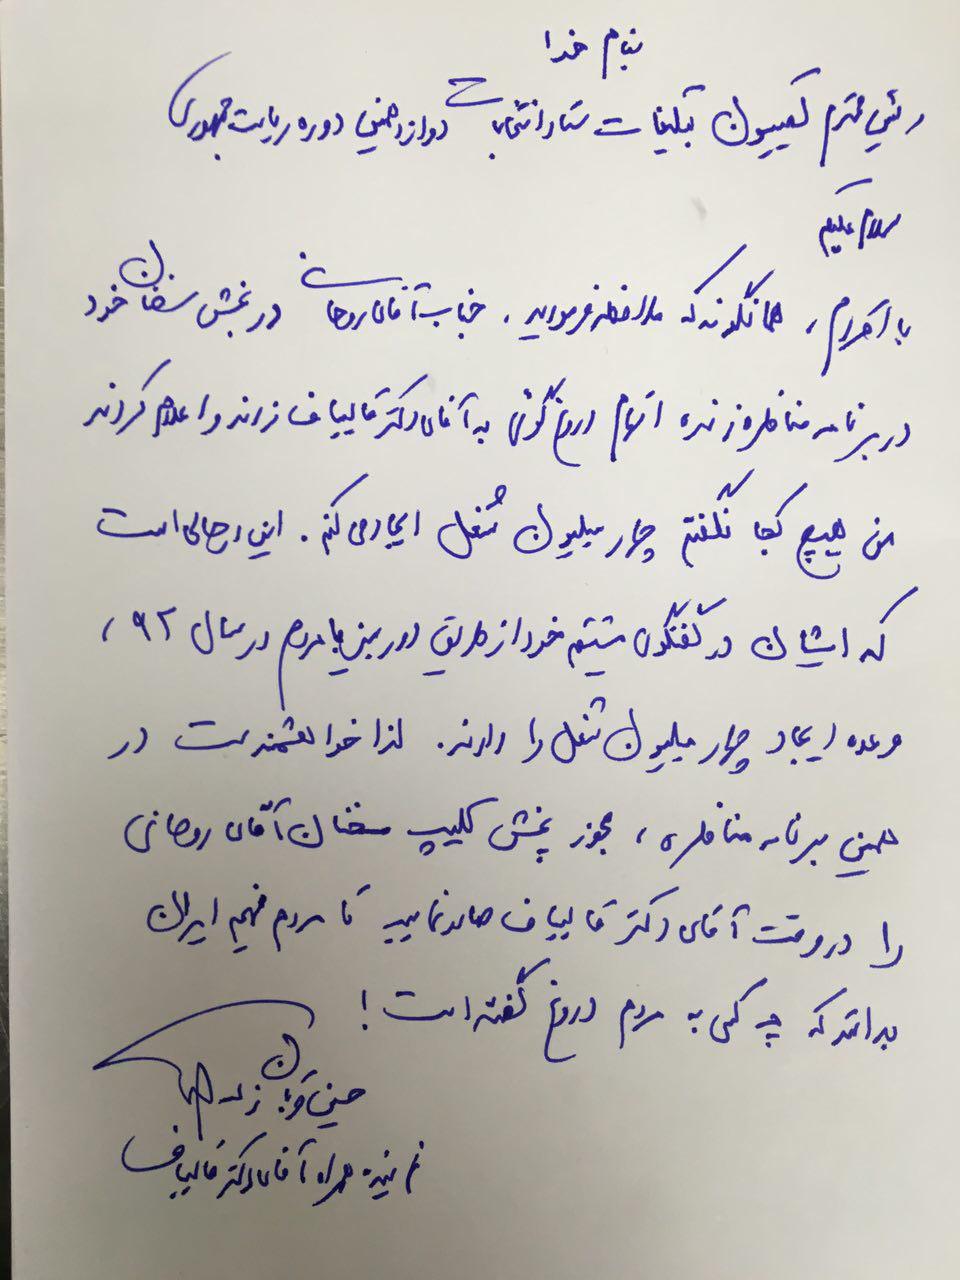 بنام خدا
رئیس محترم کمیسیون تبلیغات ستاد انتخابات دوازدهمین دوره ریاست جمهوری
سلام علیکم
با احترام، همانگونه که ملاحظه فرمودید، جناب آقای روحانی در بخش سخنان خود
در برنامه مناظره زنده اتهام دروغ گوئی به آقای دکتر قالیباف زدند و اعلام کردند
من هیچ کجا نگفتم چهار میلیون شغل ایجاد می کنم. این در حالی است
که ایشان در گفتگوی مستقیم خود از طریق دوربین با مردم در سال ۹۲،
وعده ایجاد چهار میلیون شغل را دادند. لذا خواهشمند است در
همین برنامه مناظره، مجوز پخش کلیپ سخنان آقای روحانی
را در وقت آقای دکتر قالیباف صادر نمایید تا مردم فهیم ایران
بدانند که چه کسی به مردم دروغ گفته است!
حسین قربان زاده
نماینده همراه آقای دکتر قالیباف